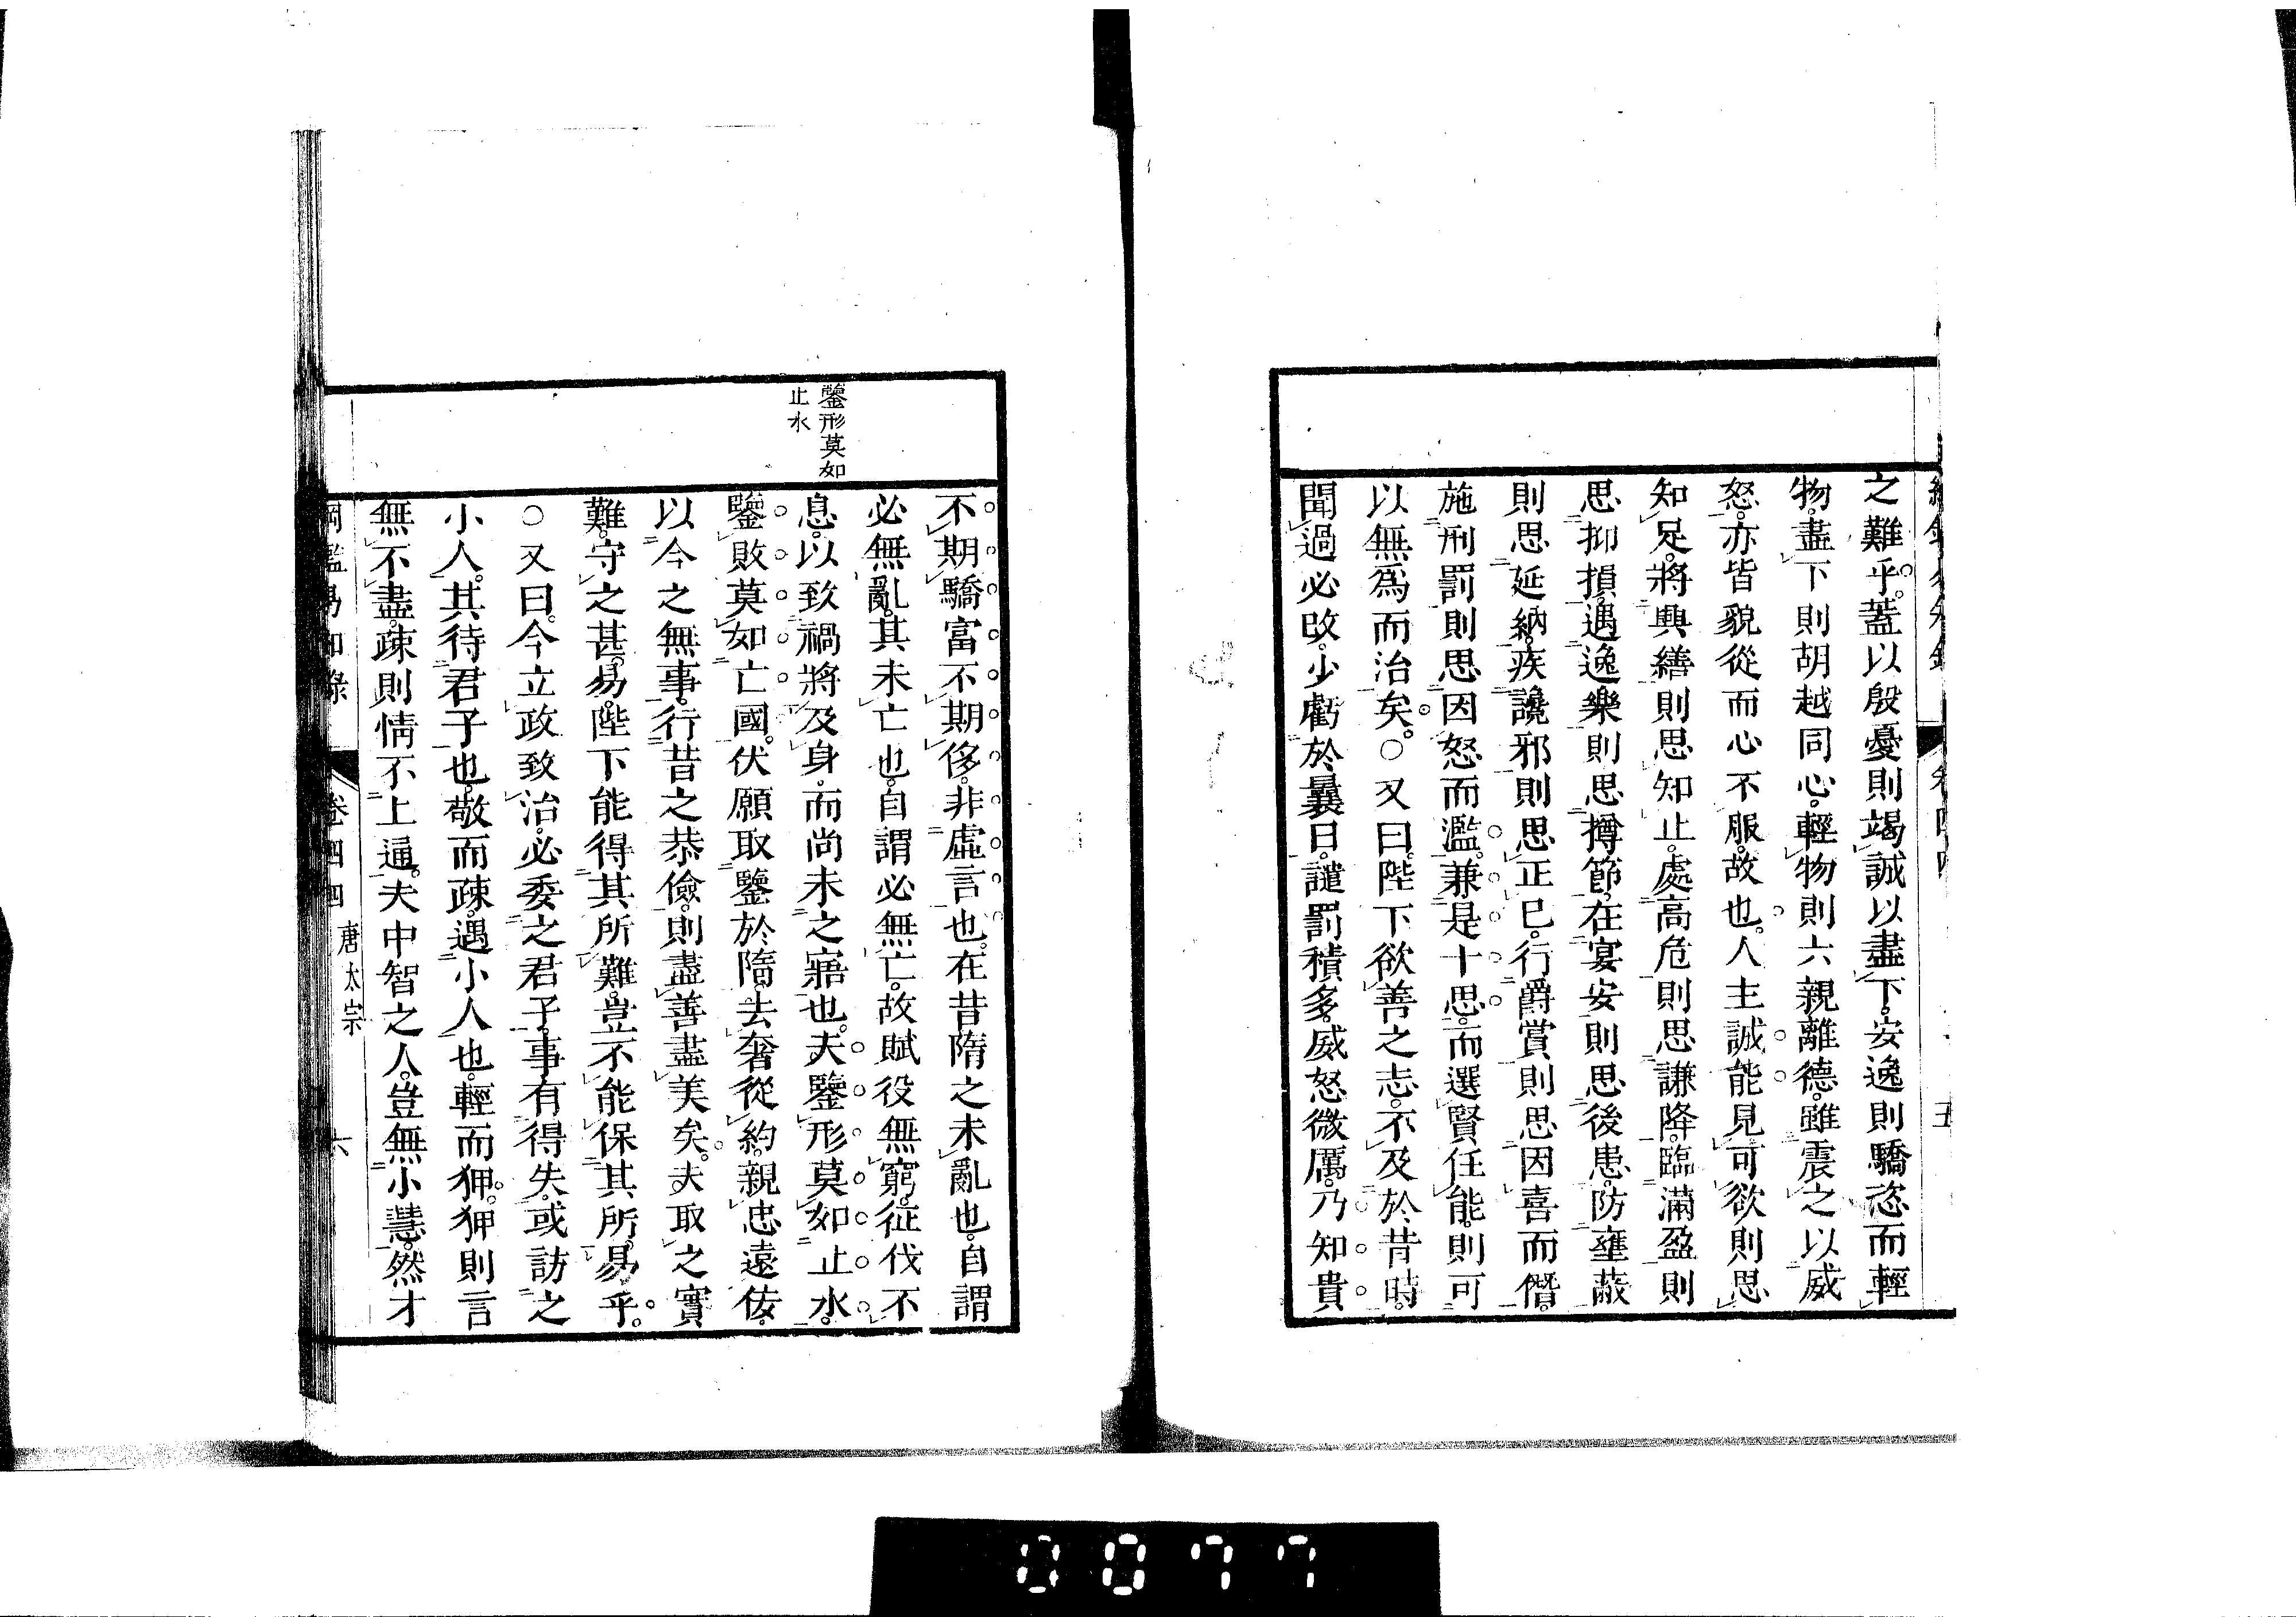 之難乎。蓋以殷憂則竭誠以盡下。安逸則驕恣而輕
物。盡下則胡越同心。輕物則六親離德。雖震之以威
怒。亦皆貌從而心不服。故也。人主誠能見可欲則思
知足。將興繕則思知止。處高危則思謙降。臨滿盈則
思抑損。遇逸樂則思撙節。在宴安則思後患。防壅蔽
則思延納。疾讒邪則思正已。行爵賞則思因喜而僭。
施刑罰則思因怒而濫。兼是十思。而選賢任能。則可
以無爲而治矣。○又曰。陛下欲善之志。不及於昔時。
聞過必改。少虧於曩日。譴罰積多。威怒微厲。乃知貴
鑒形莫如
止水
不期驕。富不期侈。非虛言也。在昔隋之未亂也。自謂
必無亂。其未亡也。自謂必無亡。故賦役無窮。征伐不
息。以致禍將及身。而尚未之寤也。夫鑒形莫如止水。
鑒敗莫如亡國。伏願取鑒於隋。去奢從約。親忠遠佞。
以今之無事。行昔之恭儉。則盡善盡美矣。夫取之實
難。守之甚易。陛下能得其所難。豈不能保其所易乎。
○又曰。今立政致治。必委之君子。事有得失。或訪之
小人。其待君子也。敬而疎。遇小人也。輕而狎。狎則言
無不盡。疎則情不上通。夫中智之人。豈無小慧。然才
綱鑑易知錄 卷四四 唐太宗 六